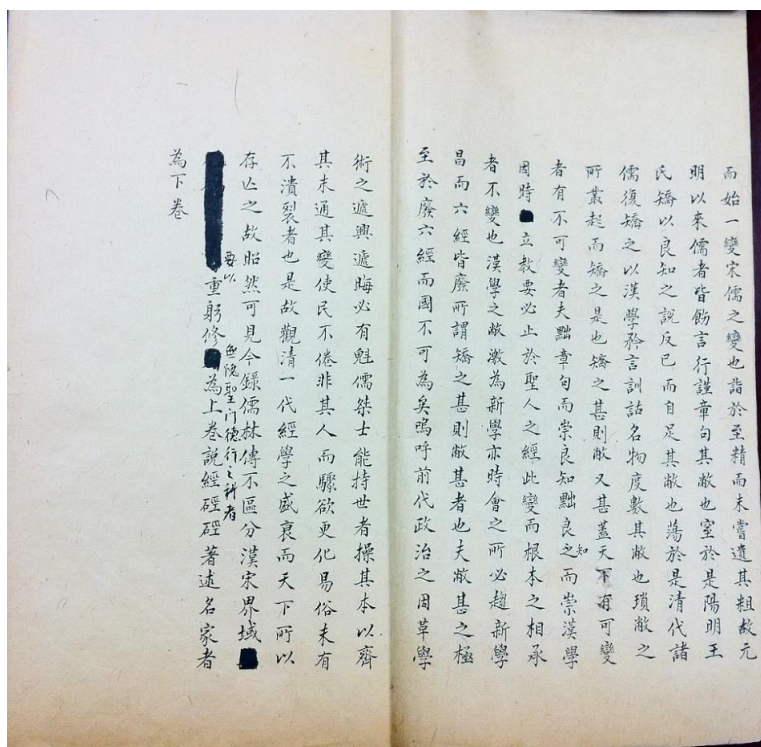 而始一變宋儒之變也詣於至精而未嘗遺其粗故元
明以來儒者皆飭言行謹章句其敝也窒於是陽明王
氏矯以良知之說反己而自足其敝也蕩於是清代諸
儒復矯之以漢學矜言訓詁名物度數其敝也瑣敝之
所叢起而矯之是也矯之甚則敝又甚蓋天下有可變
者有不可變者夫黜章句而崇良知黜良知而崇漢學
因時立教要必止於聖人之經此變而根本之相承
者不變也漢學之敝激為新學亦時會之所必趨新學
昌而六經皆廢所謂矯之甚則敝甚者也夫敝甚之極
至於廢六經而國不可為矣嗚呼前代政治之因革學
術之遞興遞晦必有魁儒桀士能持世者操其本以齊
其末通其變使民不倦非其人而驟欲更化易俗未有
不潰裂者也是故觀清一代經學之盛衰而天下所以
存亾之故昭然可見今錄儒林傳不區分漢宋界域
要以重躬修無愧聖门德行之科者為上卷說經硜硜著述名家者
為下卷